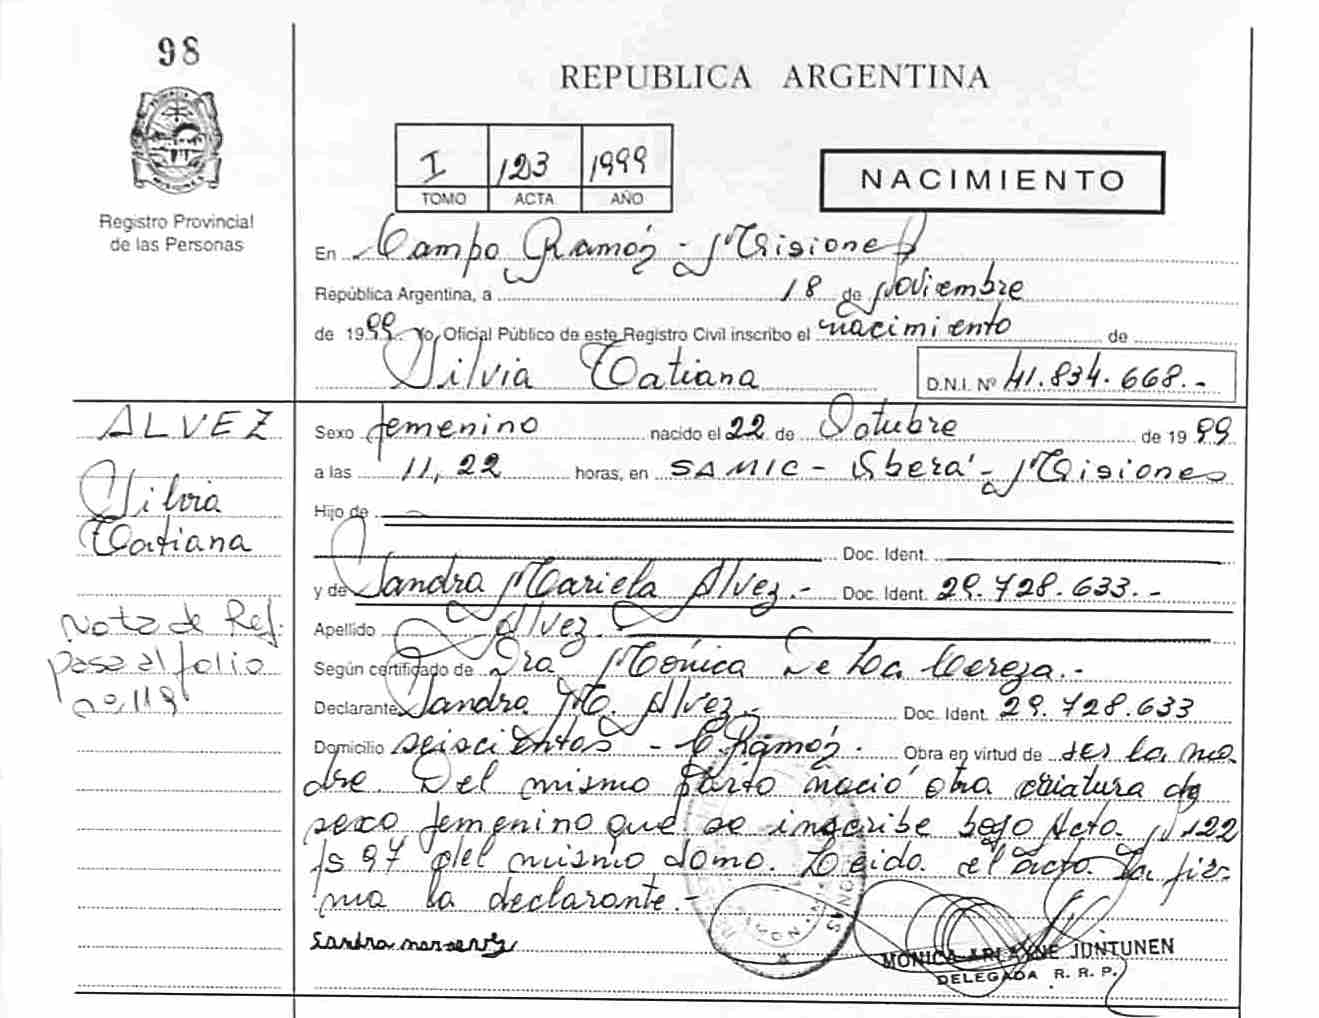 98
REPUBLICA ARGENTINA
I 123 1999
TOMO ACTA AÑO
NACIMIENTO
Registro Provincial
de las Personas
En Campo Ramón - Misiones
República Argentina, a 18 de Noviembre
de 1999 Yo, Oficial Público de este Registro Civil inscribo el nacimiento de
Silvia Tatiana D.N.I. Nº 41.834.668.-
ALVEZ
Silvia
Tatiana
Nota de Ref.
pasa al folio
nº 118
Sexo femenino nacido el 22 de Octubre de 1999
a las 11,22 horas, en SAMIC - Oberá - Misiones
Hijo de
Doc. Ident.
y de Sandra Mariela Alvez.- Doc. Ident. 29.728.633.-
Apellido Alvez.
Según certificado de Dra Mónica De La Cereza.-
Declarante Sandra M. Alvez.- Doc. Ident. 29.728.633
Domicilio seiscientos - C. Ramón. Obra en virtud de ser la ma
dre. Del mismo parto nació otra criatura de
sexo femenino que se inscribe bajo Acta 122
fs 97 del mismo tomo. Leído el acta la fir-
ma la declarante.-
Sandra
MONICA ARLAYNE JUNTUNEN
DELEGADA R. R. P.